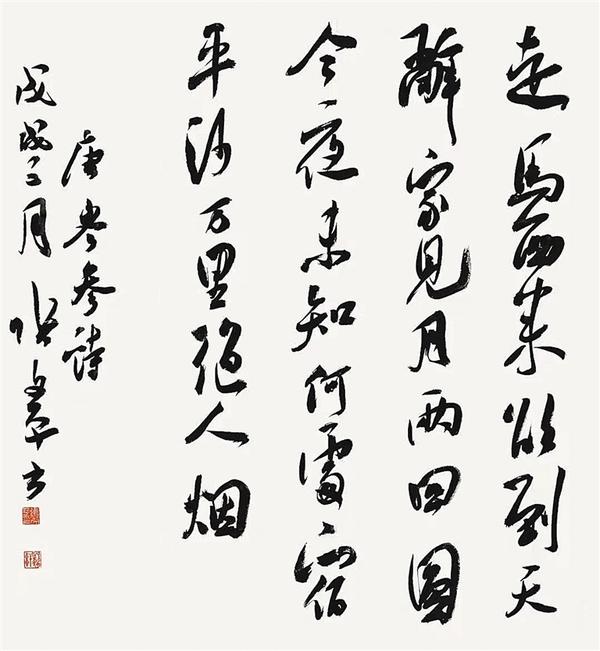 走馬西来欲到天
辭家見月兩回圓
今夜未知何處宿
平沙万里絕人烟
唐岑參詩
戊戌三月 張 書